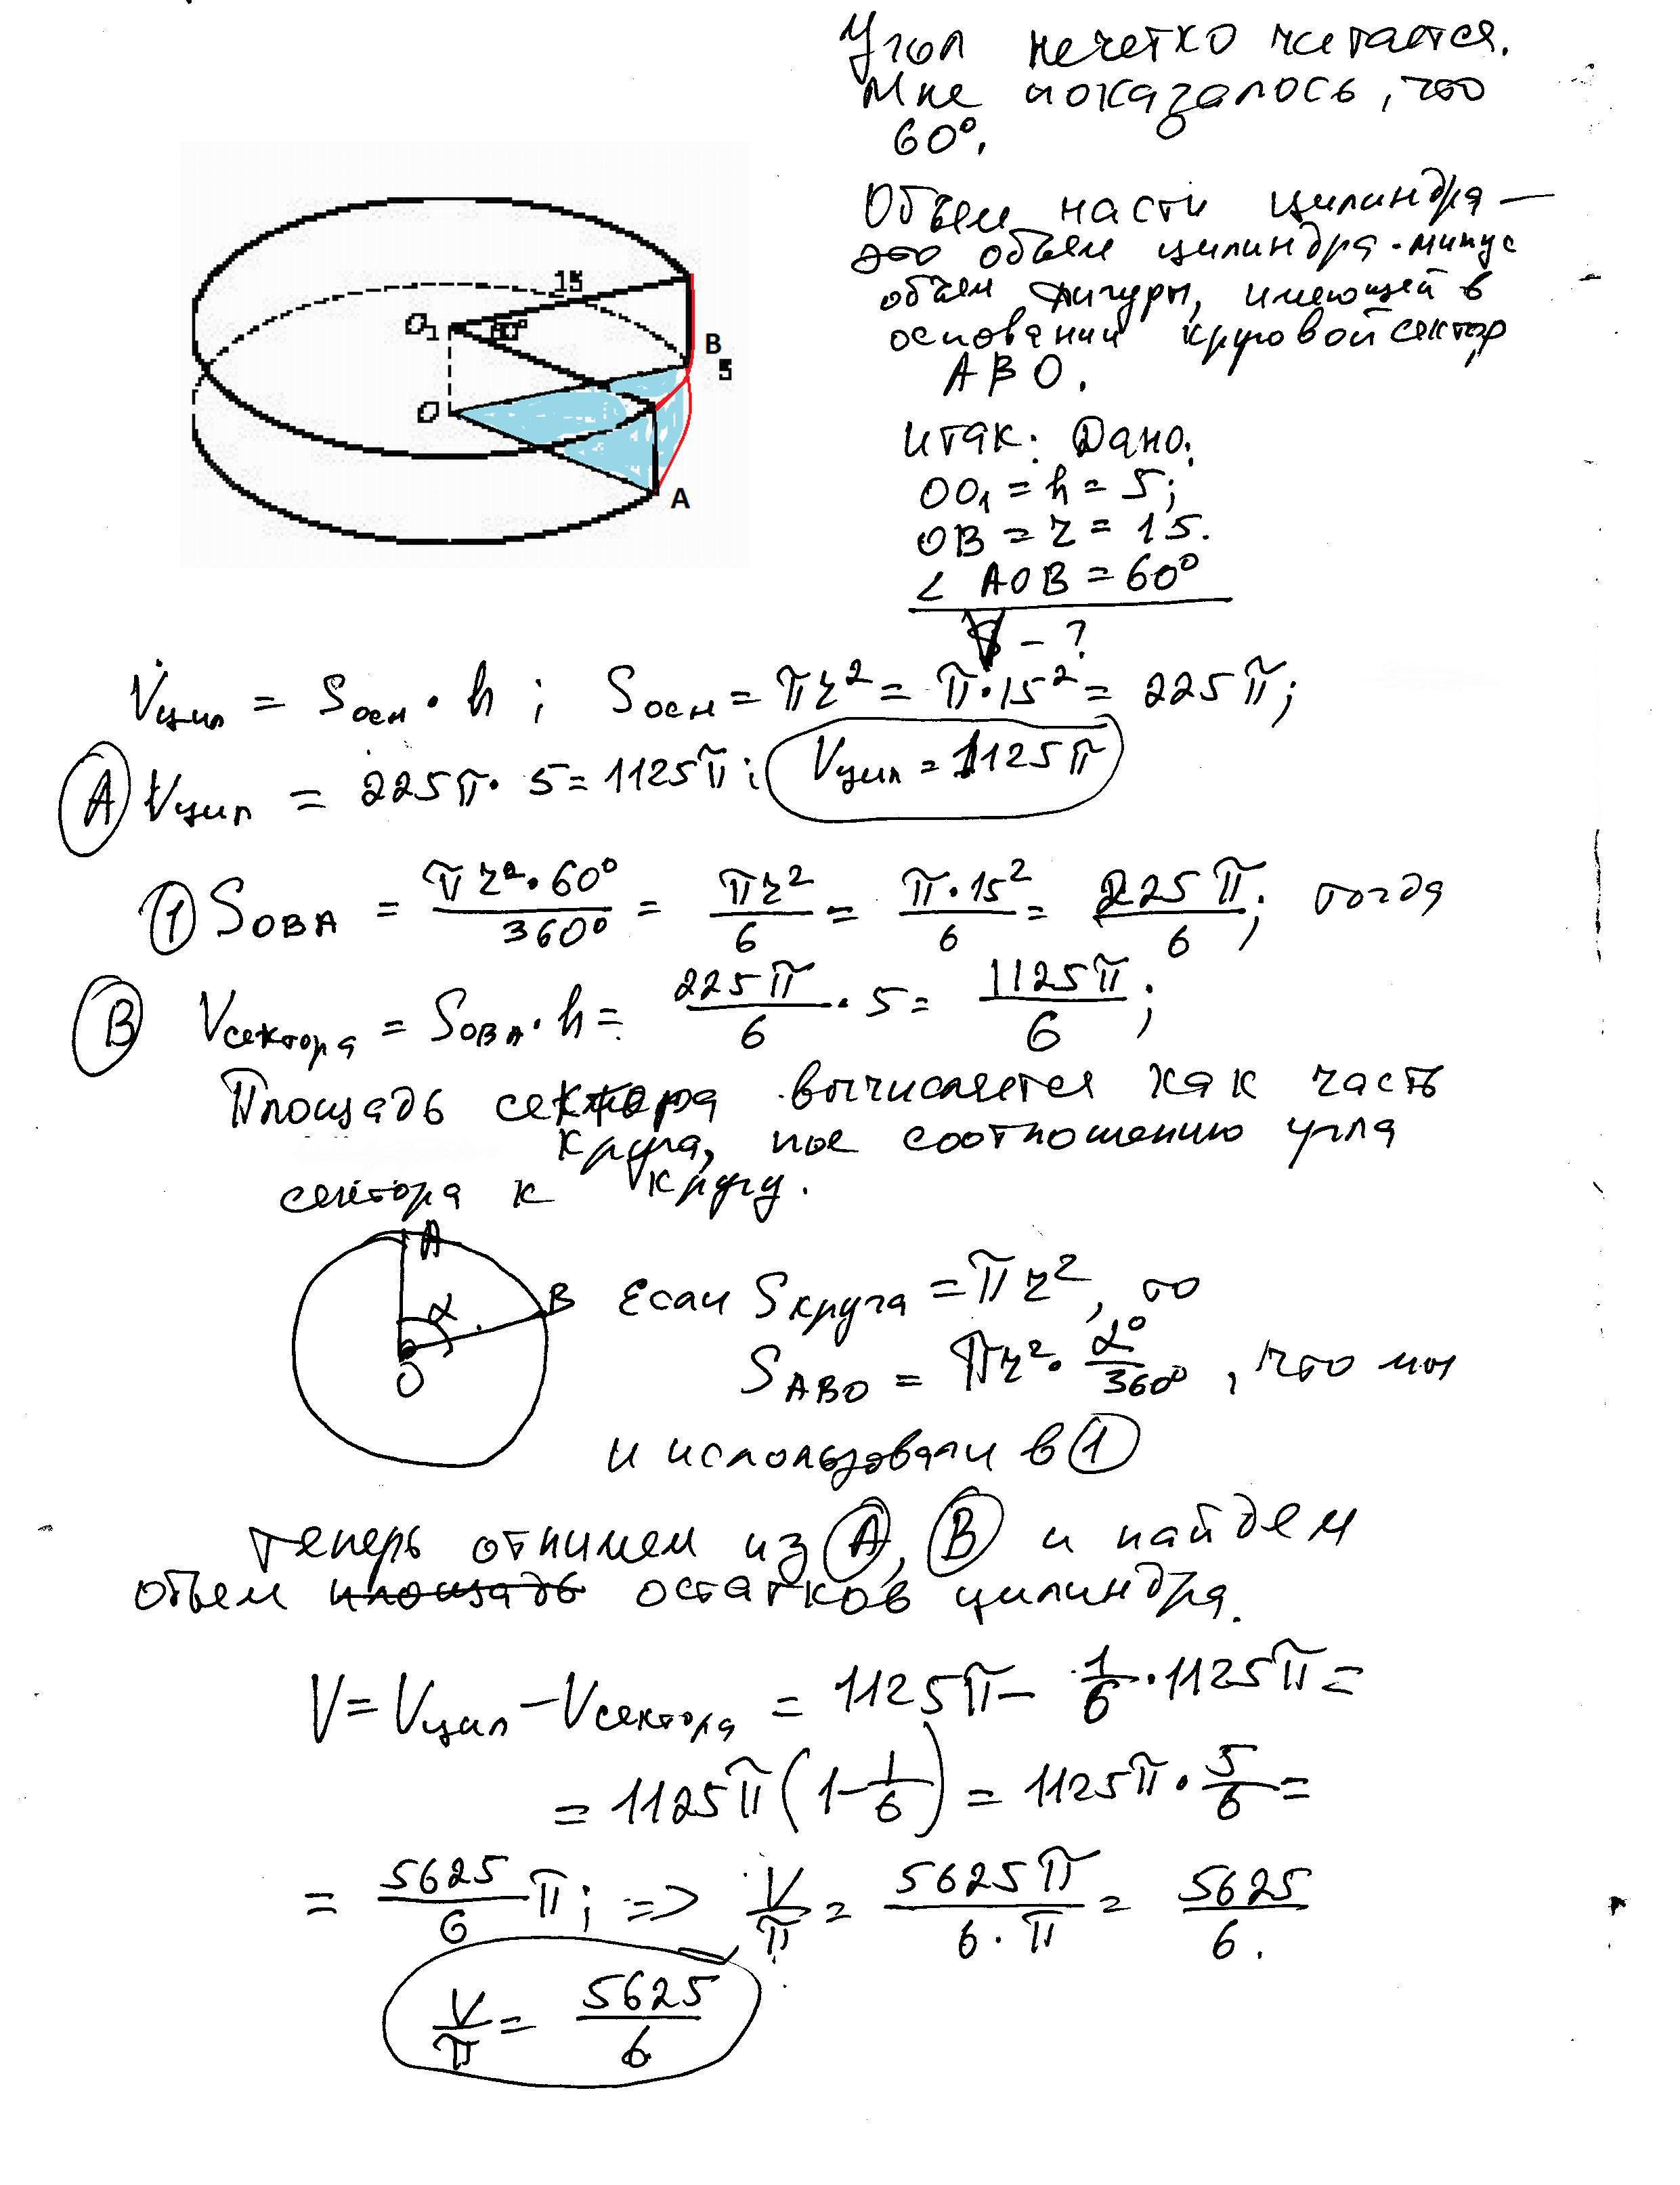 Угол нечетко читается.
Мне показалось, что
60°.
Объем части цилиндра —
это объем цилиндра минус
объем фигуры, имеющей в
основании круговой сектор
ABO.
15
O₁
60°
B
5
O
A
итак: Дано:
OO₁ = h = 5;
OB = r = 15.
∠ AOB = 60°
V - ?
Vцил = Sосн · h ; Sосн = πr² = π·15² = 225π;
Ⓐ Vцил = 225π · 5 = 1125π; Vцил = 1125π
① SOBA = πr²·60°/360° = πr²/6 = π·15²/6 = 225π/6; тогда
Ⓑ Vсектора = SOBA · h = 225π/6 · 5 = 1125π/6;
Площадь сектора вычисляется как часть
круга, по соотношению угла
сектора к кругу.
A
α
B
O
Если Sкруга = πr², то
SABO = πr² · α°/360°, что мы
и использовали в ①
Теперь отнимем из Ⓐ, Ⓑ и найдем
объем площадь остатков цилиндра.
V = Vцил − Vсектора = 1125π − 1/6 · 1125π =
= 1125π(1 − 1/6) = 1125π · 5/6 =
= 5625/6 π; => V/π = 5625π/6·π = 5625/6.
V/π = 5625/6